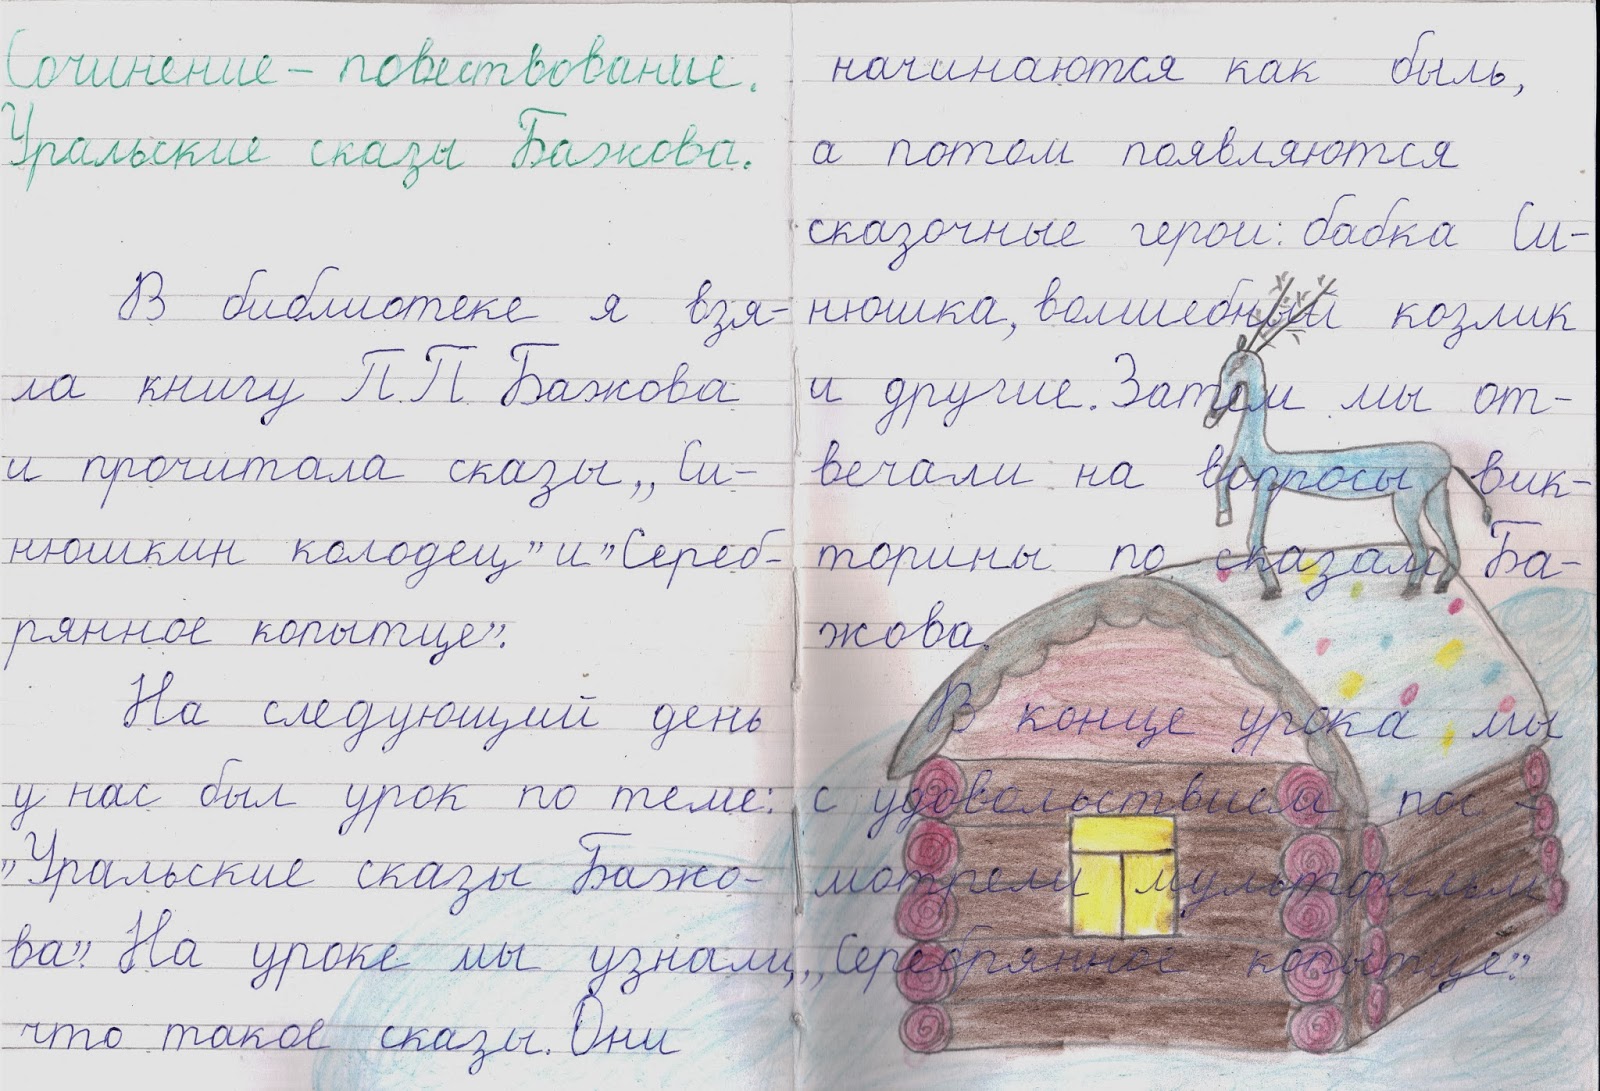 Сочинение – повествование.
Уральские сказы Бажова.
В библиотеке я взя-
ла книгу П.П. Бажова
и прочитала сказы „Си-
нюшкин колодец” и ”Сереб-
рянное копытце”.
На следующий день
у нас был урок по теме:
”Уральские сказы Бажо-
ва”. На уроке мы узнали,
что такое сказы. Они
начинаются как быль,
а потом появляются
сказочные герои: бабка Си-
нюшка, волшебный козлик
и другие. Затем мы от-
вечали на вопросы вик-
торины по сказам Ба-
жова.
В конце урока мы
с удовольствием пос-
мотрели мультфильм
„Серебрянное копытце”.